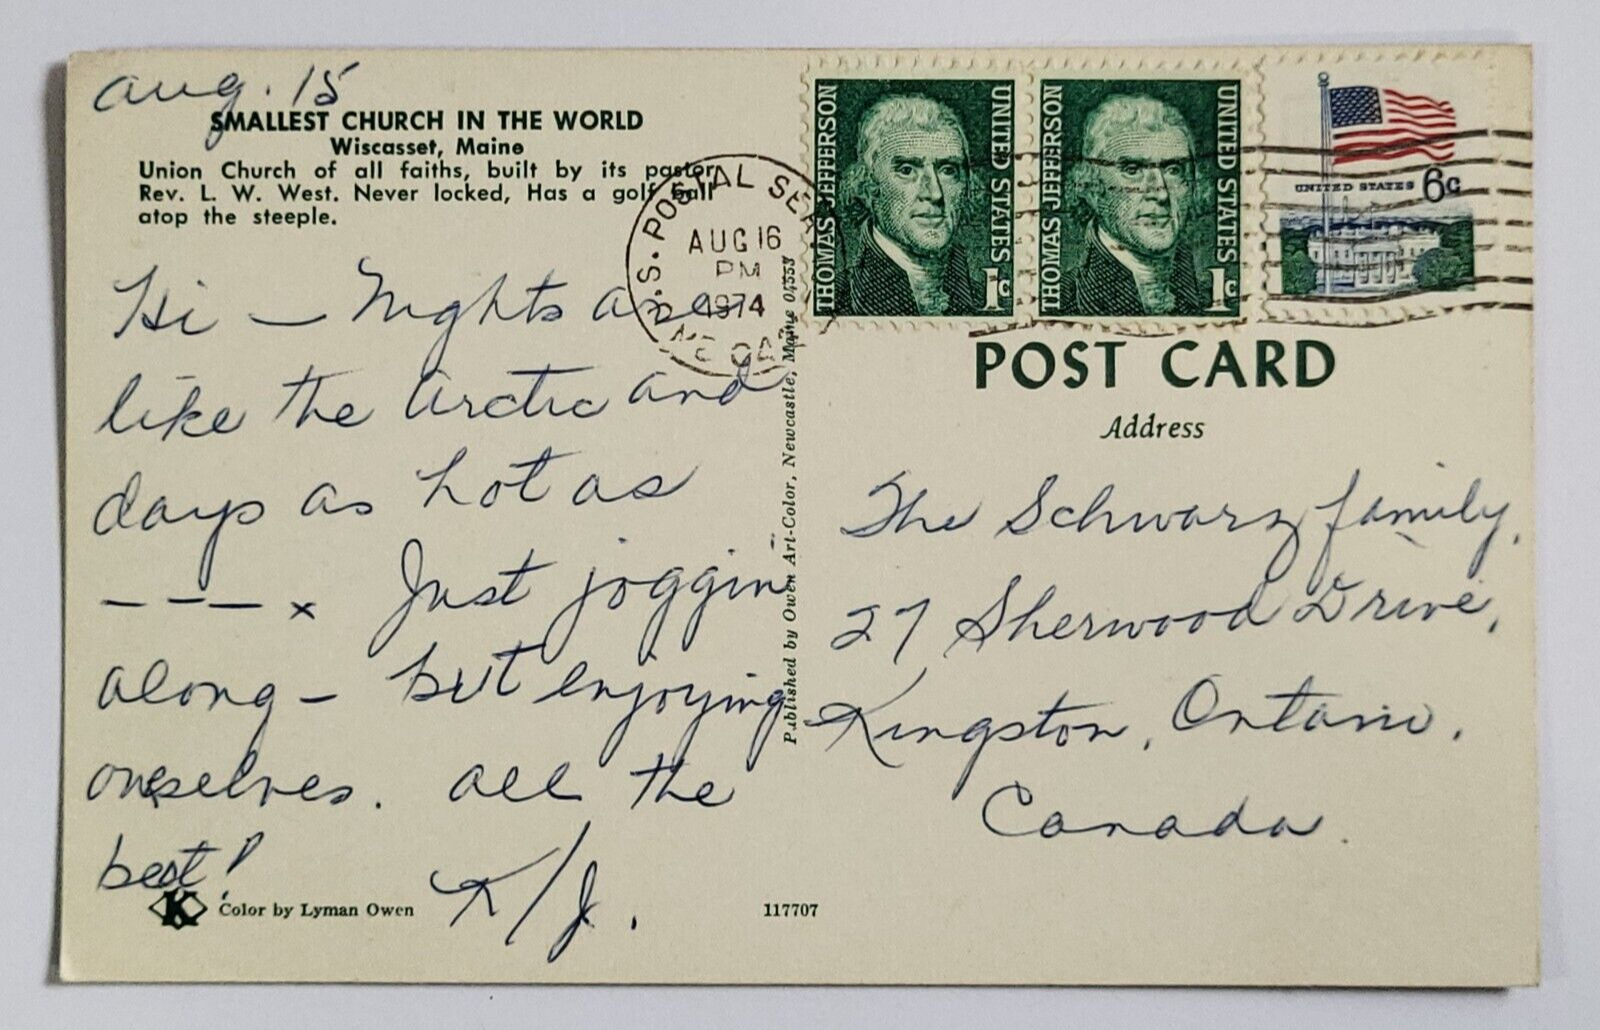 Aug. 15
SMALLEST CHURCH IN THE WORLD
Wiscasset, Maine
Union Church of all faiths, built by its pastor,
Rev. L. W. West. Never locked, Has a golf ball
atop the steeple.
Hi — Nights are
like the Arctic and
days as hot as
— — — x Just joggin
along — but enjoying
ourselves. All the
best!
K/J.
Color by Lyman Owen
K
117707
Published by Owen Art-Color, Newcastle, Maine 04553
U.S. POSTAL SER
AUG 16
PM
1974
THOMAS JEFFERSON
UNITED STATES
1c
THOMAS JEFFERSON
UNITED STATES
1c
UNITED STATES 6c
POST CARD
Address
The Schwarz family,
27 Sherwood Drive,
Kingston, Ontario.
Canada.